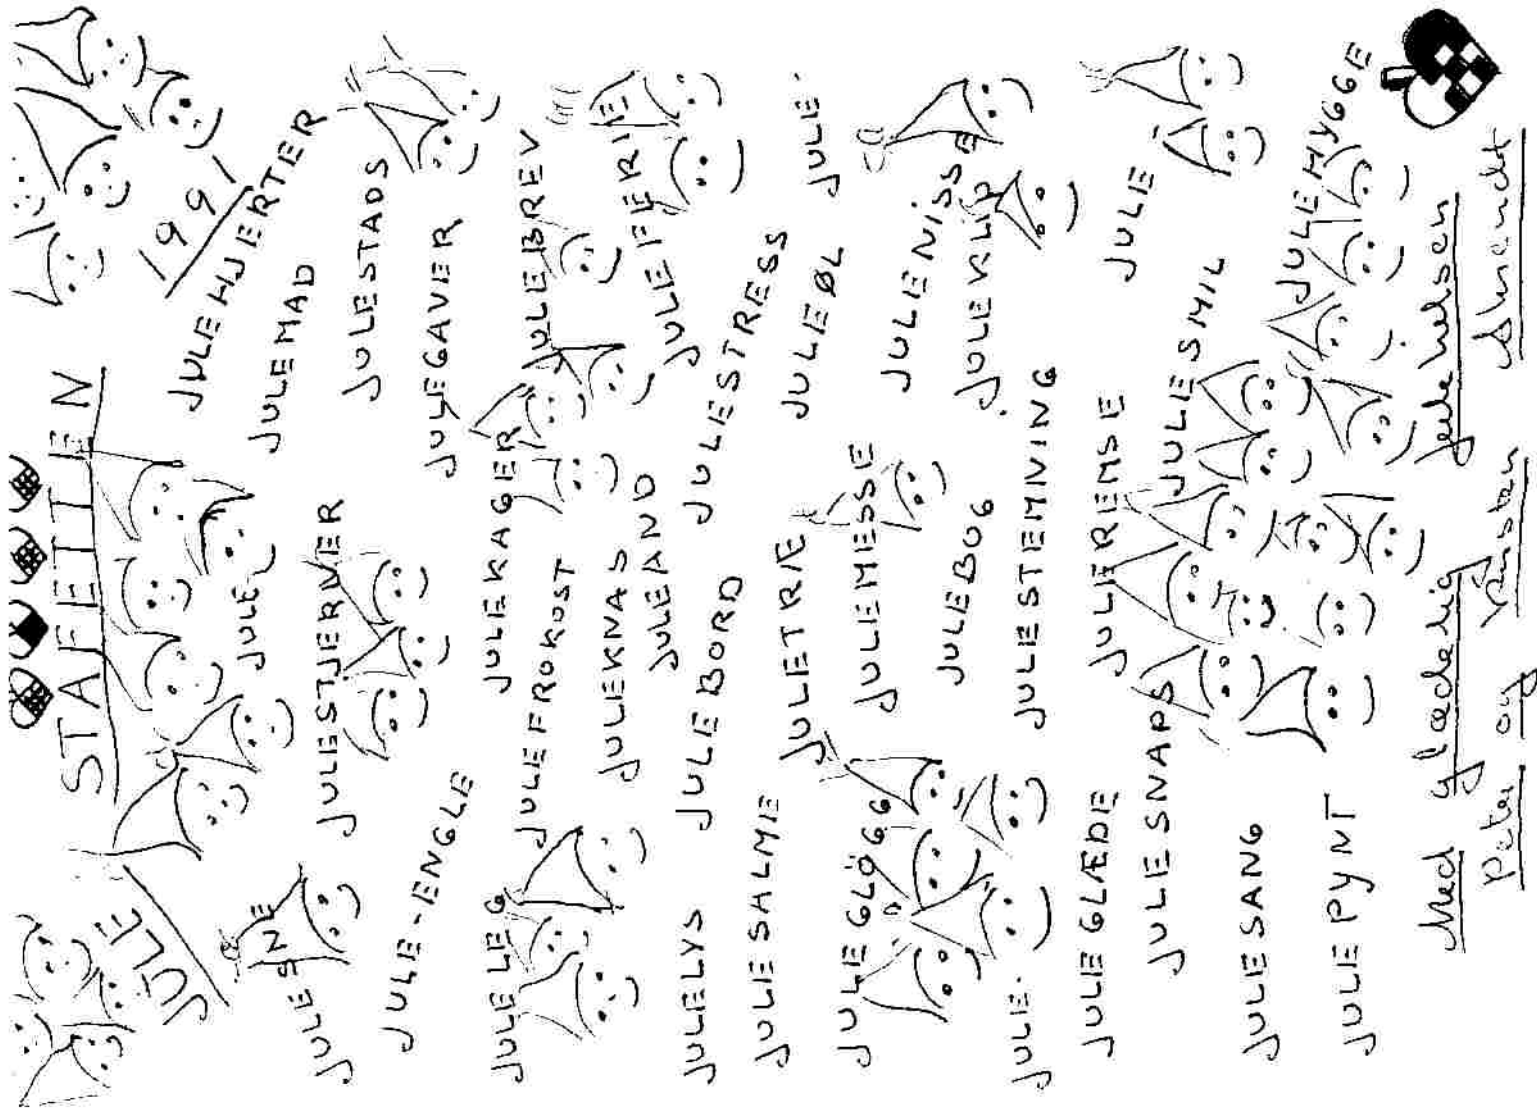 JULE STAFETTEN 1991
JULESNE JULE JULEHJERTER
JULESTJERNER JULEMAD
JULE-ENGLE JULESTADS
JULELEG JULEKAGER JULEGAVER
JULEFROKOST JULEBREV
JULEKNAS
JULEAND JULEFERIE
JULELYS JULEBORD JULESTRESS
JULESALME JULETRÆ JULEØL JULE.
JULEGLÖGG JULEMESSE JULENISSE
JULEBOG JULEKLIP
JULE. JULESTEMNING
JULEGLÆDE JULEREMSE JULE
JULESNAPS JULESMIL
JULESANG JULEHYGGE
JULEPYNT
Med glædelig julehilsen
Peter og Kirsten